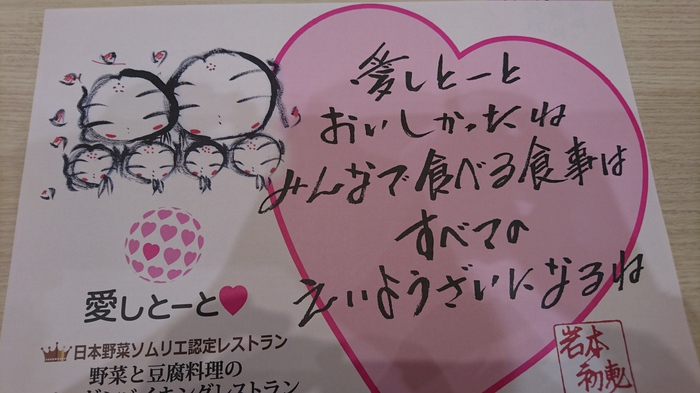 愛しとーと
おいしかったね
みんなで食べる食事は
すべての
えいようざいになるね
岩本
初恵
愛しとーと
日本野菜ソムリエ認定レストラン
野菜と豆腐料理の
バイキングレストラン